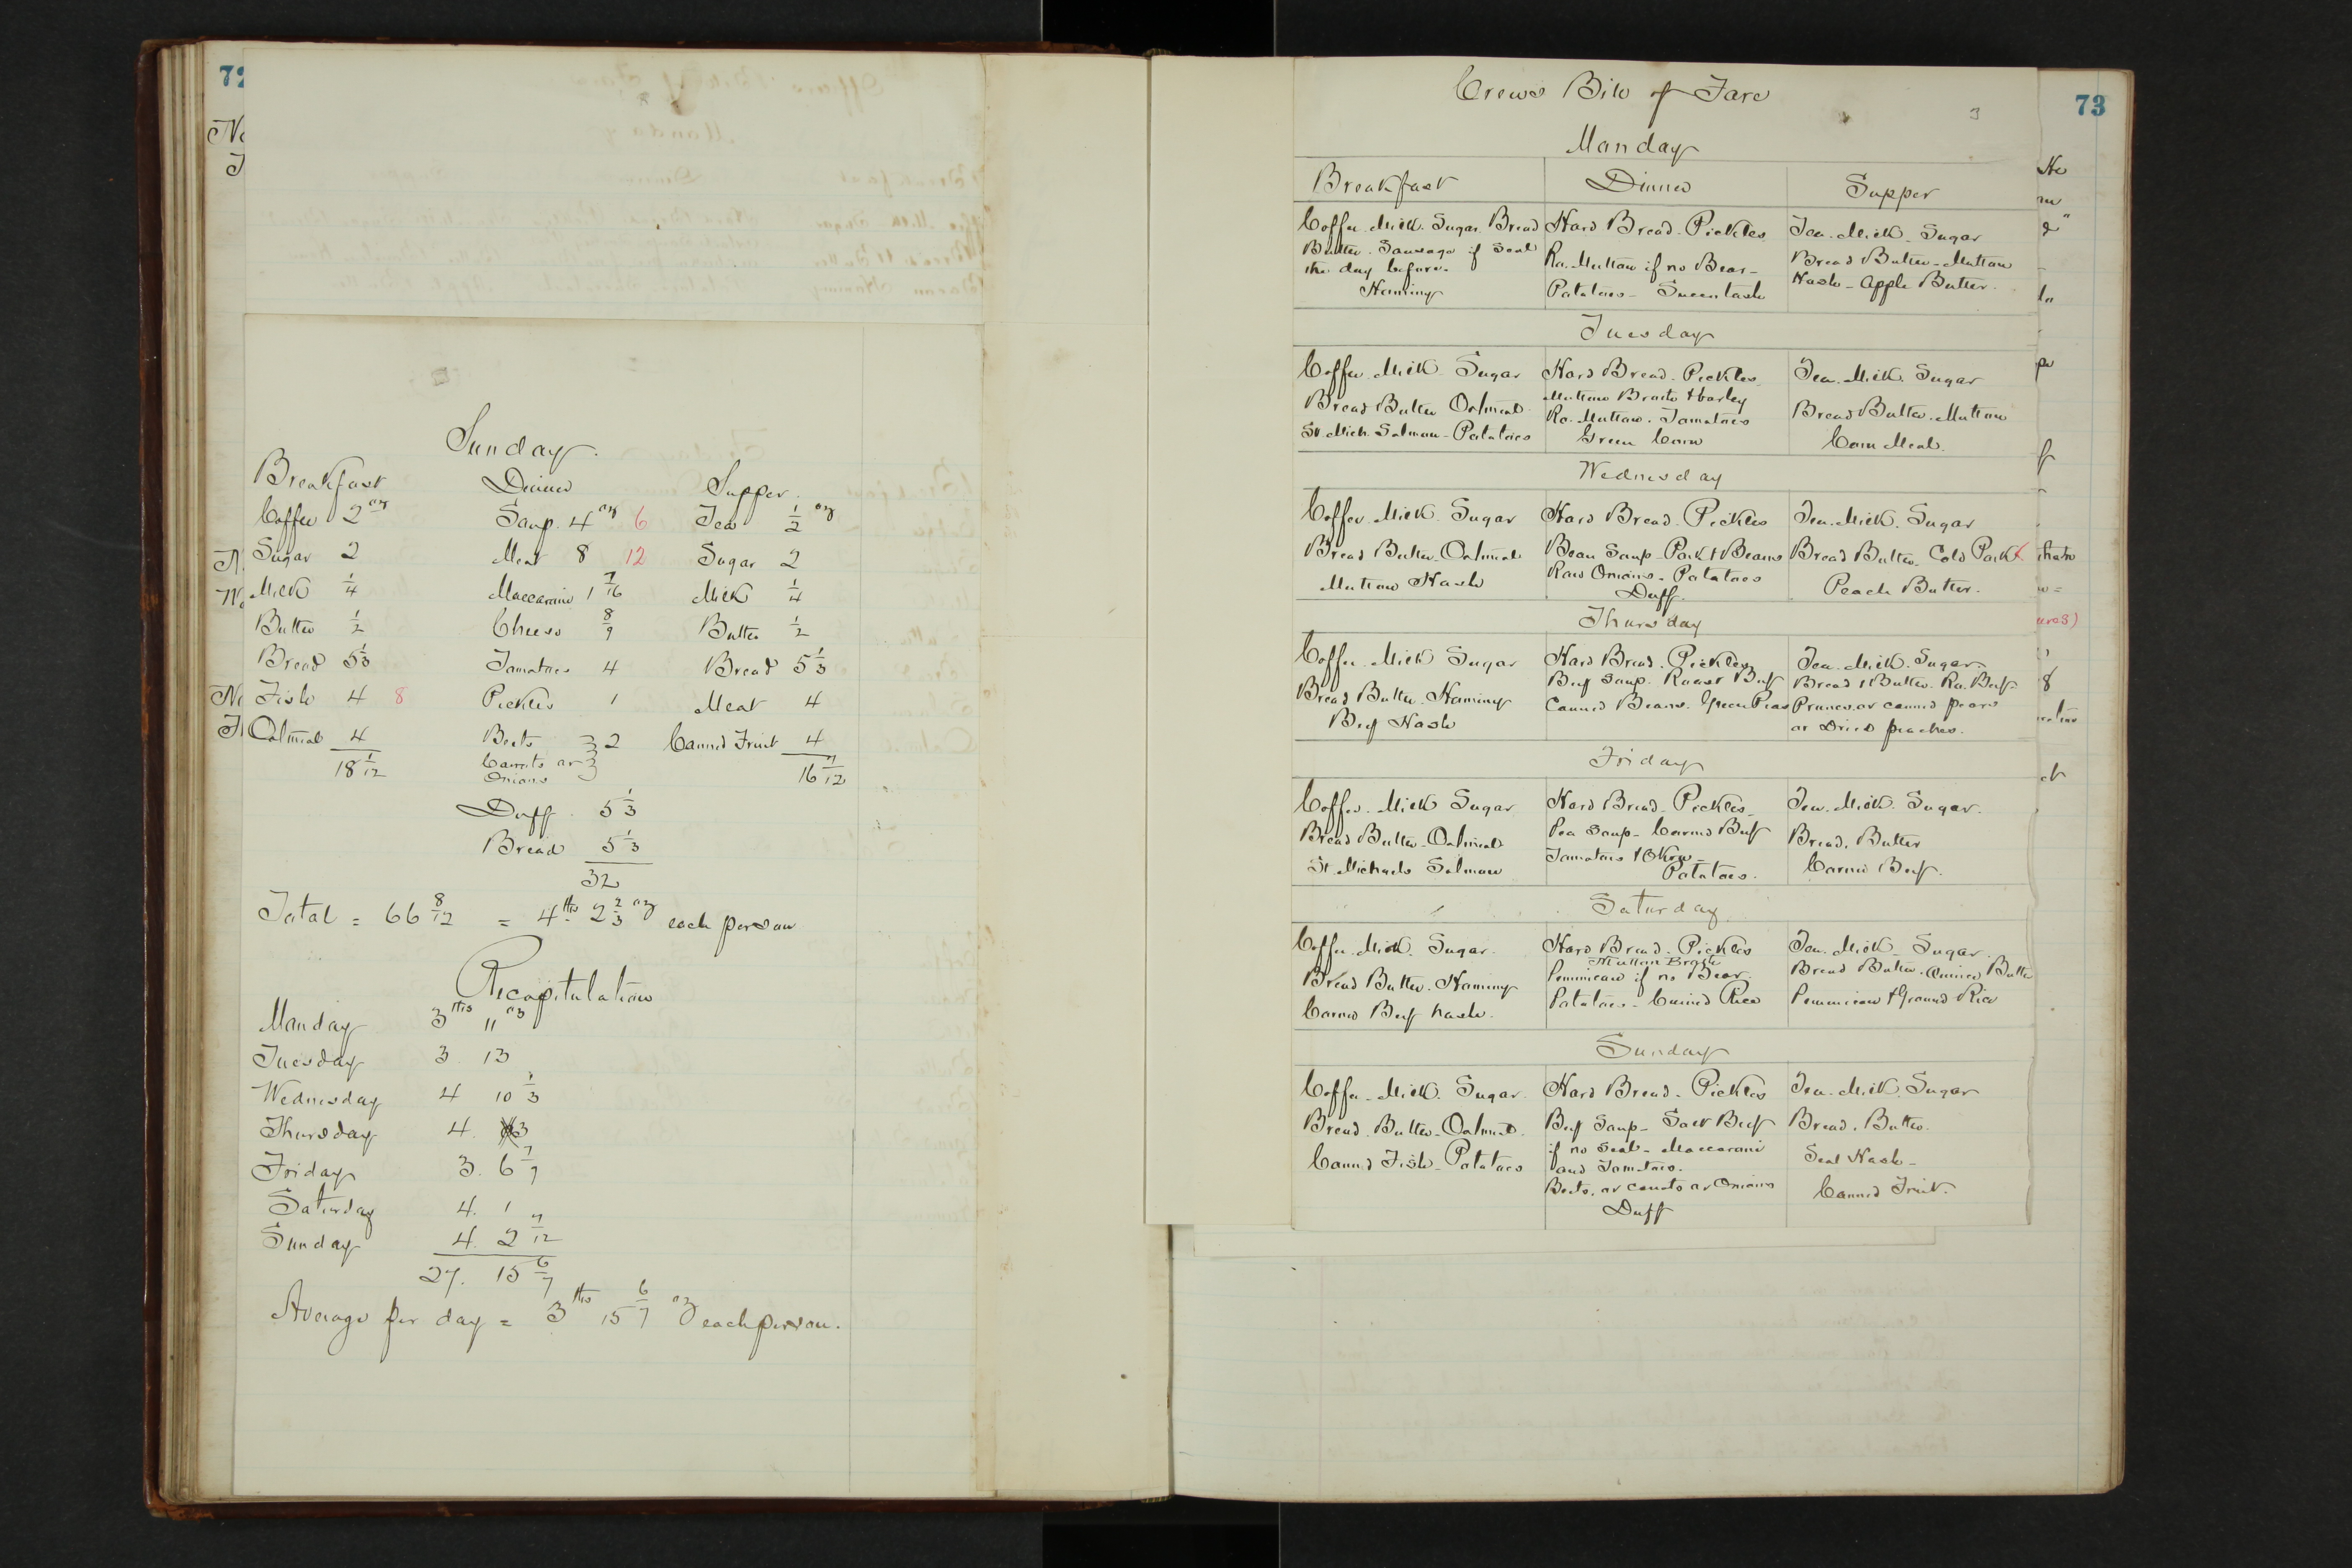 72
Sunday.
Breakfast Dinner Supper.
Coffee 2 oz Soup. 4 oz 6 Tea 1/2 oz
Sugar 2 Meat 8 12 Sugar 2
Milk 1/4 Maccaroni 1 7/16 Milk 1/4
Butter 1/2 Cheese 8/9 Butter 1/2
Bread 5 1/3 Tomatoes 4 Bread 5 1/3
Fish 4 8 Pickles 1 Meat 4
Oatmeal 4 Beets 2 Canned Fruit 4
18 1/12 Carrots or 16 7/12
Onions
Duff. 5 1/3
Bread 5 1/3
32
Total = 66 8/12 = 4 lbs 2 2/3 oz each person
Recapitulation
Monday 3 lbs 11 oz
Tuesday 3. 13
Wednesday 4 10 1/3
Thursday 4. 3
Friday 3. 6 7/9
Saturday 4. 1
Sunday 4. 2 7/12
27. 15 6/7
Average per day = 3 lbs 15 6/7 oz each person.
73
Crews Bill of Fare
3
Monday
Breakfast Dinner Supper
Coffee. Milk. Sugar. Bread
Butter. Sausage if Seal
the day before.
Hominy
Hard Bread. Pickles
Ro. Mutton if no Bear-
Potatoes- Succotash
Tea. Milk. Sugar
Bread Butter- Mutton
Hash- Apple Butter.
Tuesday
Coffee. Milk. Sugar
Bread Butter Oatmeal.
St Mich. Salmon- Potatoes
Hard Bread. Pickles.
Mutton Broth & barley
Ro. Mutton. Tomatoes
Green Corn
Tea. Milk. Sugar
Bread Butter. Mutton
Corn Meal.
Wednesday
Coffee. Milk. Sugar
Bread Butter- Oatmeal
Mutton Hash
Hard Bread. Pickles
Bean Soup- Pork & Beans
Raw Onions- Potatoes
Duff.
Tea. Milk. Sugar
Bread Butter- Cold Pork
Peach Butter.
Thursday
Coffee. Milk Sugar
Bread Butter. Hominy
Beef Hash
Hard Bread. Pickles
Beef Soup. Roast Beef
Canned Beans. Green Peas
Tea. Milk. Sugar-
Bread & Butter. Ro. Beef-
Prunes. or canned pears
or Dried peaches.
Friday
Coffee. Milk Sugar
Bread Butter- Oatmeal
St. Michaels Salmon
Hard Bread- Pickles-
Pea Soup- Corned Beef
Tomatoes & Okra-
Potatoes.
Tea. Milk. Sugar.
Bread. Butter
Corned Beef.
Saturday
Coffee. Milk. Sugar.
Bread Butter. Hominy
Corned Beef hash.
Hard Bread. Pickles
Mutton Broth
Pemmican if no Bear.
Potatoes- Curried Rice
Tea. Milk- Sugar.
Bread Butter. Butter
Pemmican & Ground Rice
Sunday
Coffee. Milk. Sugar.
Bread. Butter- Oatmeal.
Canned Fish- Potatoes
Hard Bread- Pickles
Beef Soup- Salt Beef
if no Seal- Maccaroni
and Tomatoes.
Beets, or carrots or Onions
Duff
Tea. Milk. Sugar
Bread. Butter.
Seal Hash-
Canned Fruit.